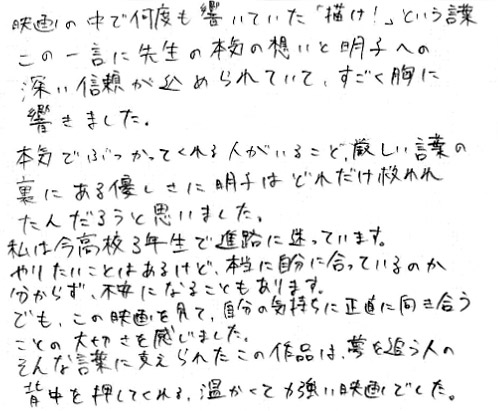 映画の中で何度も響いていた「描け！」という言葉
この一言に先生の本気の想いと明子への
深い信頼が込められていて、すごく胸に
響きました。
本気でぶつかってくれる人がいること、厳しい言葉の
裏にある優しさに明子はどれだけ救われ
たんだろうと思いました。
私は今高校3年生で進路に迷っています。
やりたいことはあるけど、本当に自分に合っているのか
分からず、不安になることもあります。
でも、この映画を見て、自分の気持ちに正直に向き合う
ことの大切さを感じました。
そんな言葉に支えられたこの作品は、夢を追う人の
背中を押してくれる、温かくて力強い映画でした。